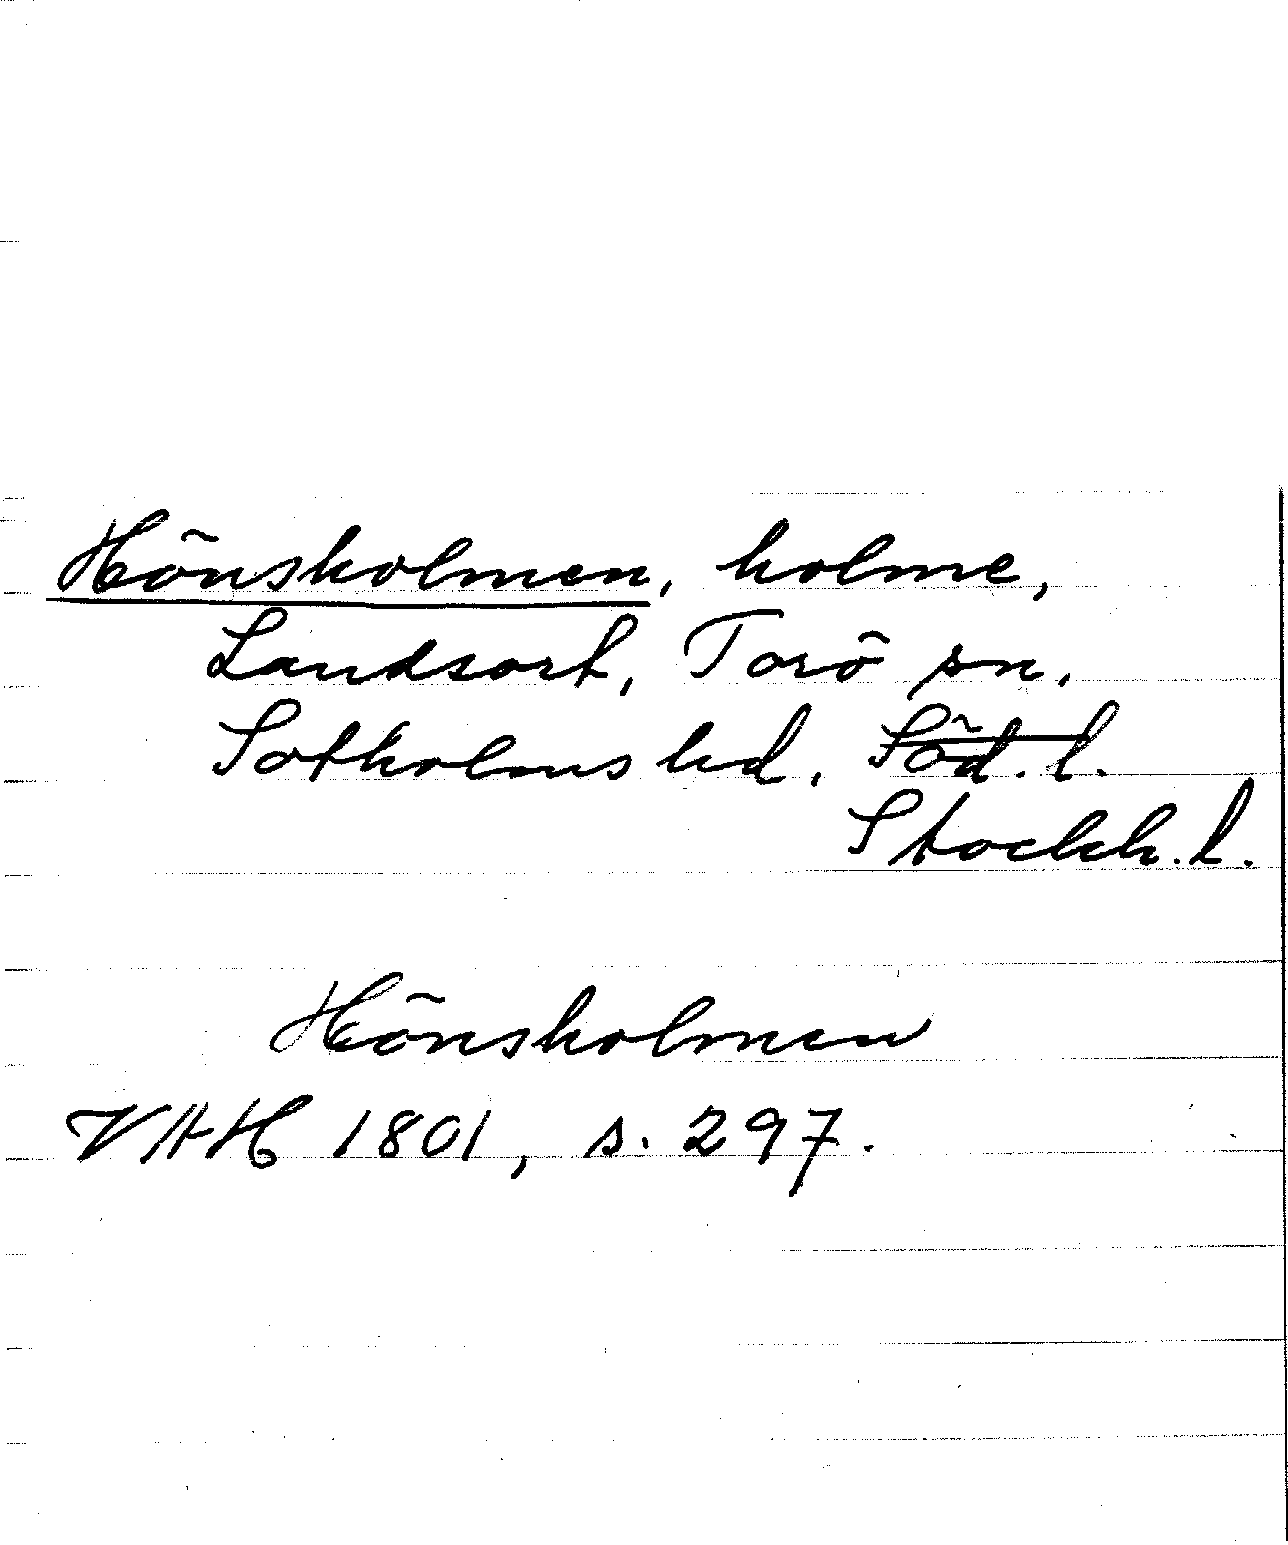 Hönsholmen, holme,
Landsort, Torö sn.
Sotholms hd. Söd. l.
Stockh. l.
Hönsholmen
VAH 1801, s. 297.